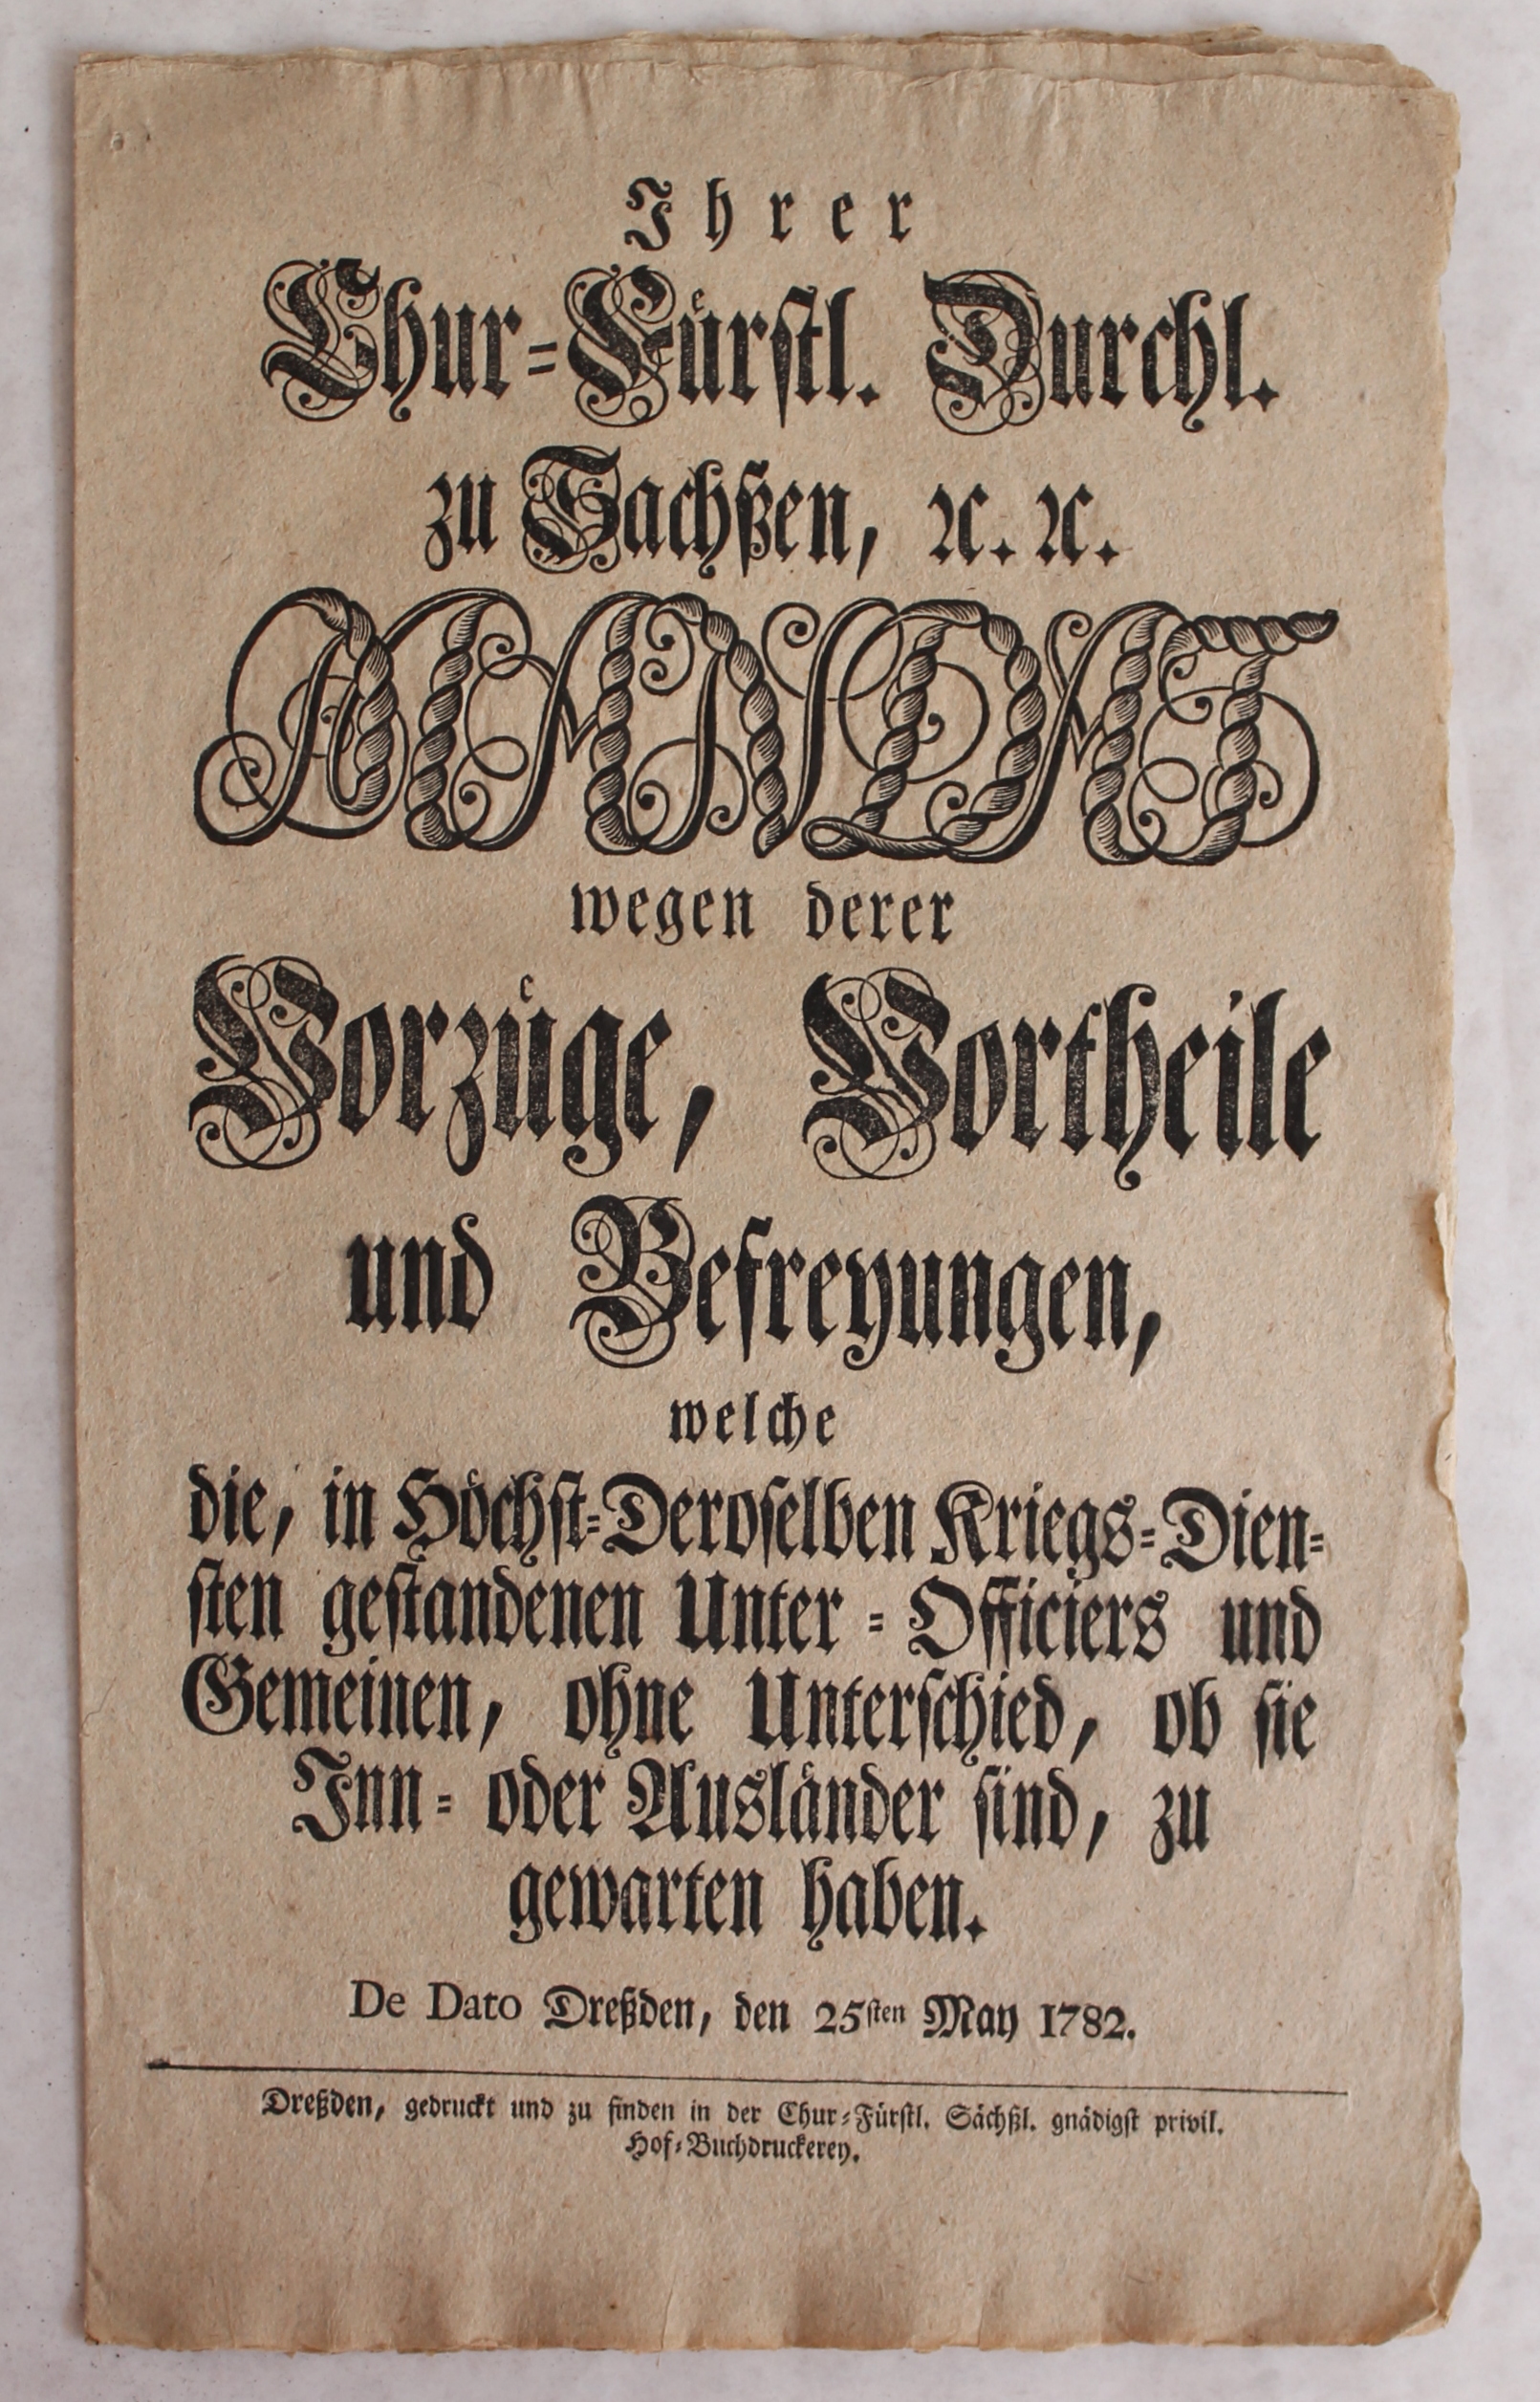 Ihrer
Chur=Fürstl. Durchl.
zu Sachßen, ꝛc. ꝛc.
MANDAT
wegen derer
Vorzüge, Vortheile
und Befreyungen,
welche
die, in Höchst=Deroselben Kriegs=Dien=
sten gestandenen Unter=Officiers und
Gemeinen, ohne Unterschied, ob sie
Inn= oder Ausländer sind, zu
gewarten haben.
De Dato Dreßden, den 25sten May 1782.
Dreßden, gedruckt und zu finden in der Chur=Fürstl. Sächßl. gnädigst privil.
Hof=Buchdruckerey.